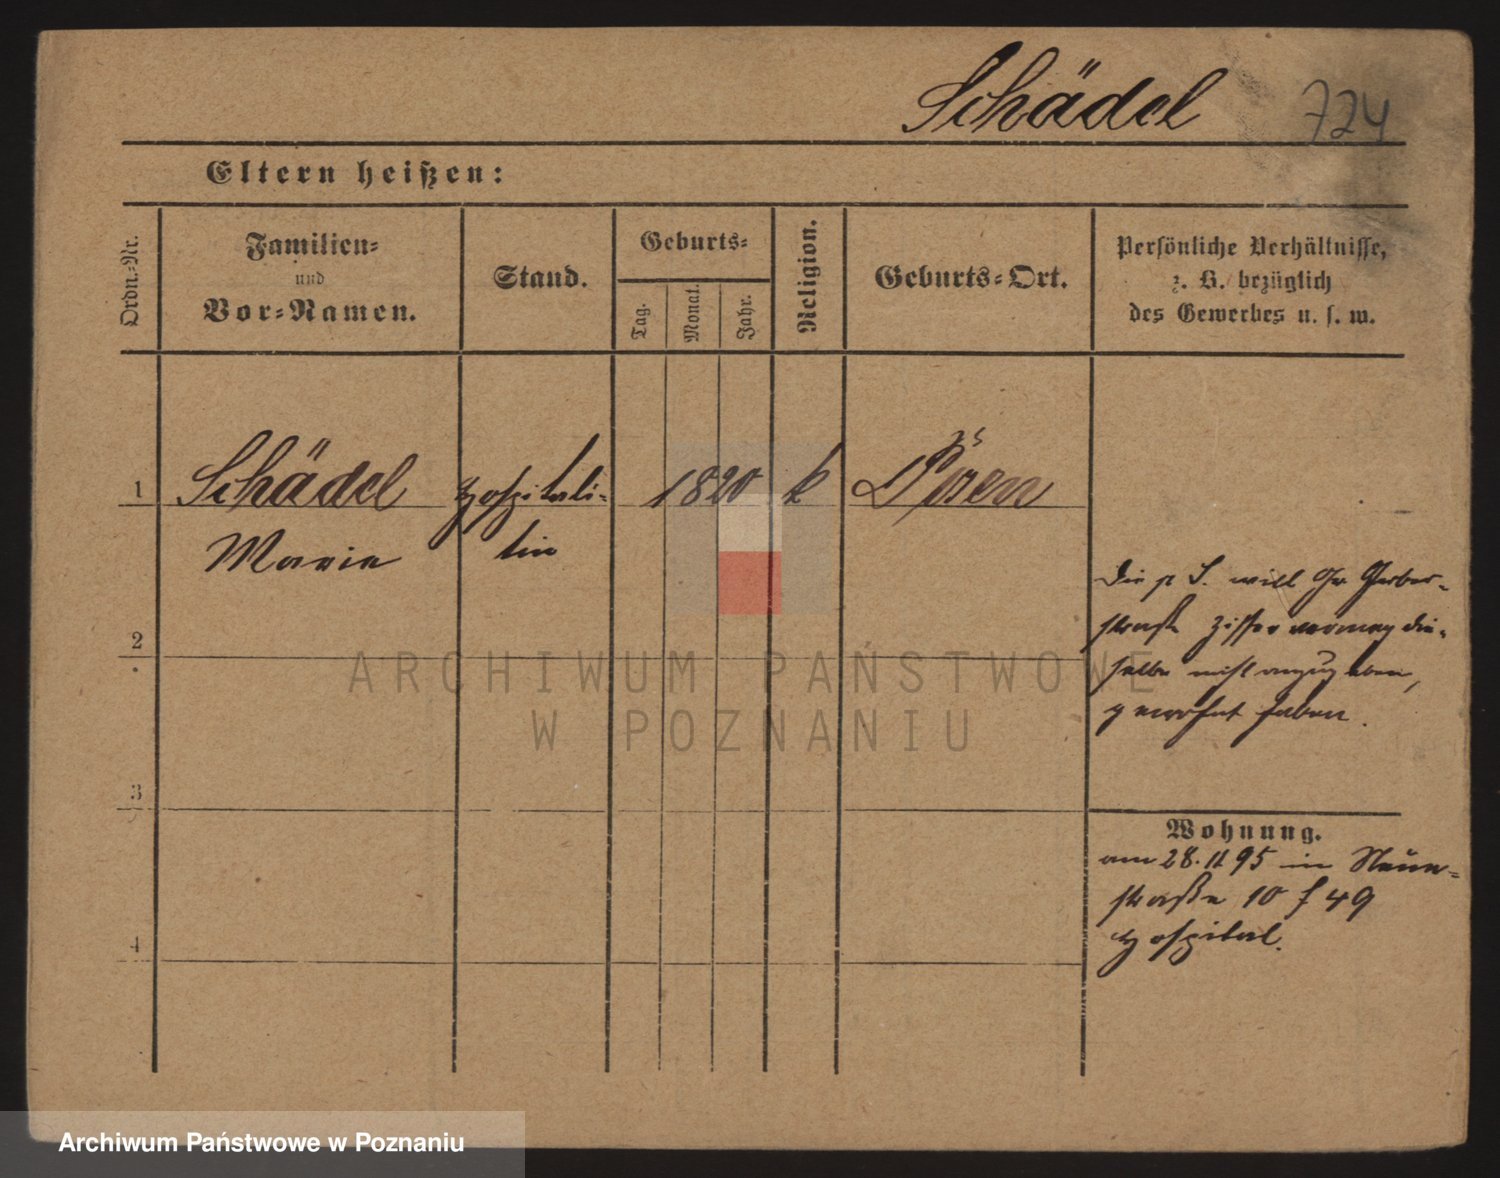 Schädel 724
Eltern heißen:
Ordn.-Nr.
Familien-
und
Vor-Namen.
Stand.
Geburts-
Tag.
Monat.
Jahr.
Religion.
Geburts-Ort.
Persönliche Verhältnisse,
z. B. bezüglich
des Gewerbes u. s. w.
1 Schädel Hospitali- 1820 k
Marie tin
Die p S. will Gr. Gerber-
straße Ziffer vermag die-
selbe nicht anzugeben,
gewohnt haben.
2
3
Wohnung.
am 28. 11 95 in
straße 10 f 49
Hospital.
4
ARCHIWUM PAŃSTWOWE
W POZNANIU
Archiwum Państwowe w Poznaniu